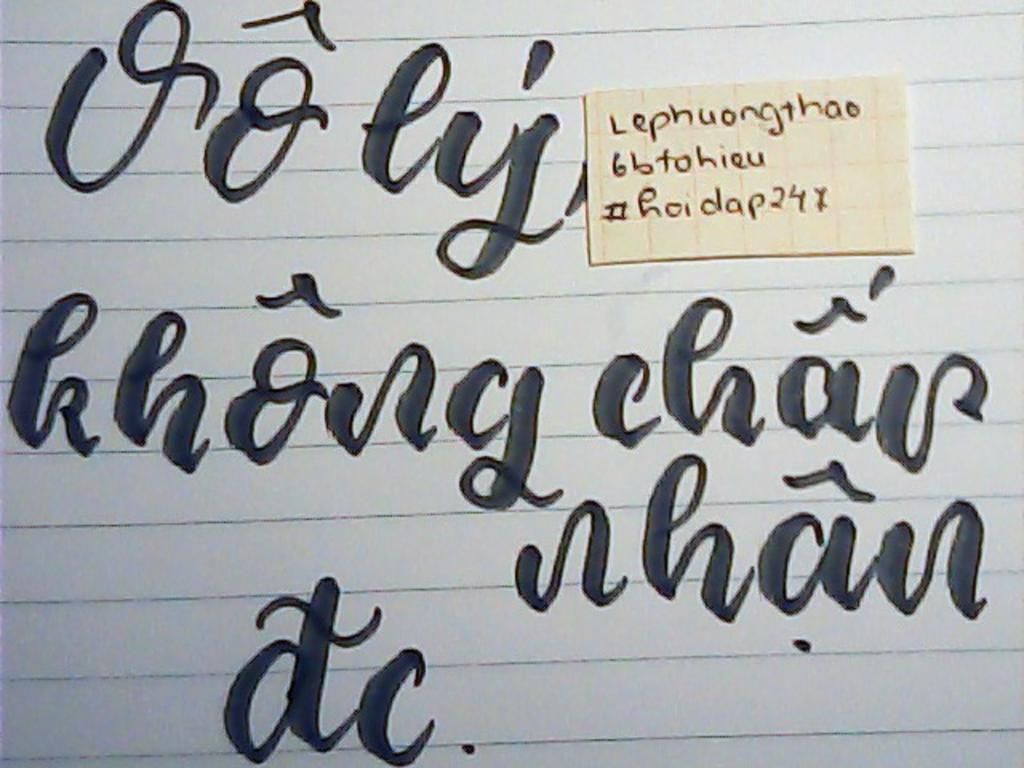 Vô lý,
Lephuongthao
6btohieu
#hoidap247
không chấp
nhận
đc.